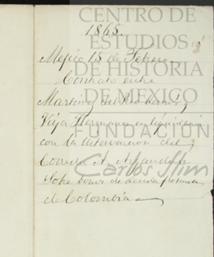 CENTRO DE
ESTUDIOS
DE HISTORIA
DE MÉXICO
FUNDACIÓN
Carlos Slim
1868.
Méjico 15 de Febrero
Contrato entre
Martinez del Rio hermanos y
Viya Hermanos en liquidacion
con la intervencion del
Corredor A.
sobre de
de Colombia